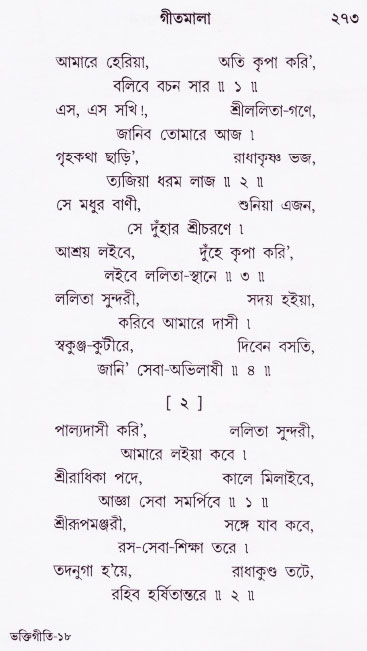 গীতমালা ২৭৩
আমারে হেরিয়া, অতি কৃপা করি’,
বলিবে বচন সার ॥ ১ ॥
এস, এস সখি!, শ্রীললিতা-গণে,
জানিব তোমারে আজ ।
গৃহকথা ছাড়ি’, রাধাকৃষ্ণ ভজ,
ত্যজিয়া ধরম লাজ ॥ ২ ॥
সে মধুর বাণী, শুনিয়া এজন,
সে দুঁহার শ্রীচরণে ।
আশ্রয় লইবে, দুঁহে কৃপা করি’,
লইবে ললিতা-স্থানে ॥ ৩ ॥
ললিতা সুন্দরী, সদয় হইয়া,
করিবে আমারে দাসী ।
স্বকুঞ্জ-কুটীরে, দিবেন বসতি,
জানি’ সেবা-অভিলাষী ॥ ৪ ॥
[ ২ ]
পাল্যদাসী করি’, ললিতা সুন্দরী,
আমারে লইয়া কবে ।
শ্রীরাধিকা পদে, কালে মিলাইবে,
আজ্ঞা সেবা সমর্পিবে ॥ ১ ॥
শ্রীরূপমঞ্জরী, সঙ্গে যাব কবে,
রস-সেবা-শিক্ষা তরে ।
তদনুগা হ’য়ে, রাধাকুণ্ড তটে,
রহিব হর্ষিতান্তরে ॥ ২ ॥
ভক্তিগীতি-১৮